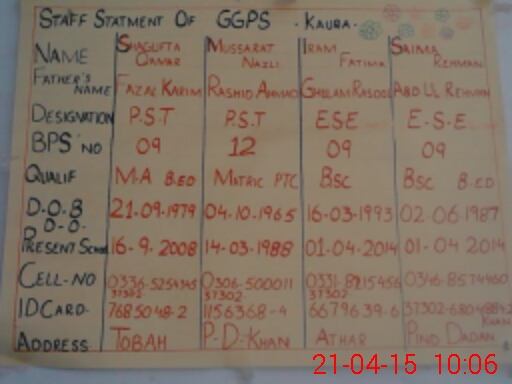 STAFF STATMENT OF GGPS - KAURA -
NAME SHAGUFTA QAMAR MUSSARAT NAZLI IRAM FATIMA SAIMA REHMAN
FATHER'S NAME FAZAL KARIM RASHID AHMAD GHULAM RASOOL ABDUL REHMAN
DESIGNATION P.S.T P.S.T ESE E-S-E
BPS NO 09 12 09 09
QUALIF M.A B.ED MATRIC PTC BSC BSC B.ED
D.O.B 21.09.1979 04.10.1965 16-03-1993 02-06-1987
D-O- PRESENT SCHOOL 16-9.2008 14-03-1988 01-04-2014 01-04 2014
CELL-NO 0336-5254345 0306-500011 0331-8215456 0346-8574460
ID CARD- 37302- 7685048-2 37302- 1156368-4 37302- 6679639-6
ADDRESS TOBAH P-D-KHAN ATHAR PIND DADAN KHAN
21-04-15 10:06